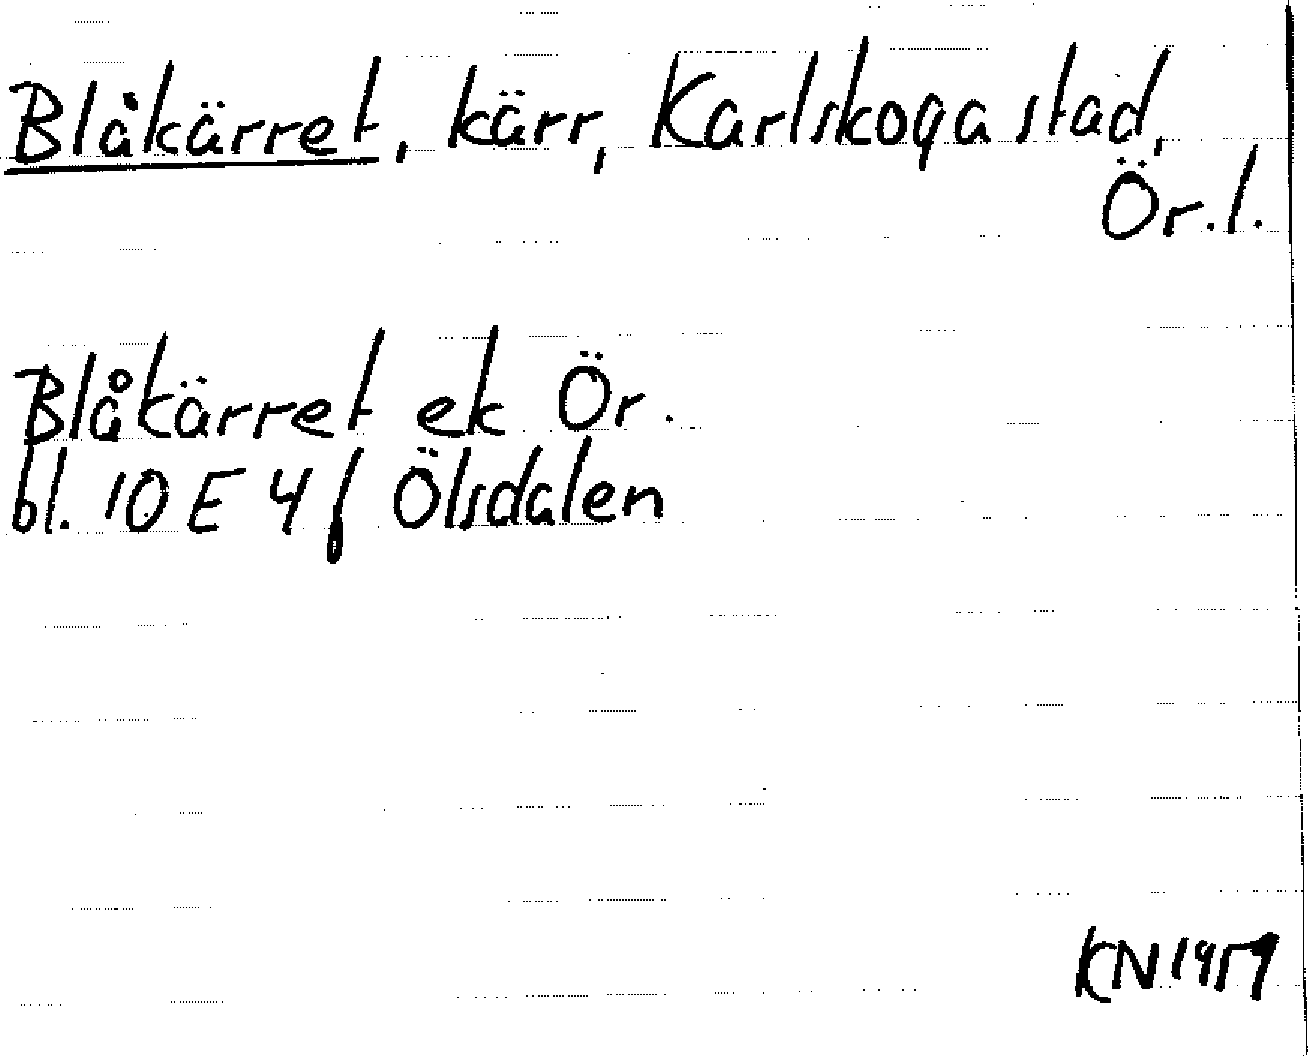 Blåkärret, kärr, Karlskoga stad,
Ör.l.
Blåkärret ek Ör.
bl. 10 E 4 f Ölsdalen
KN